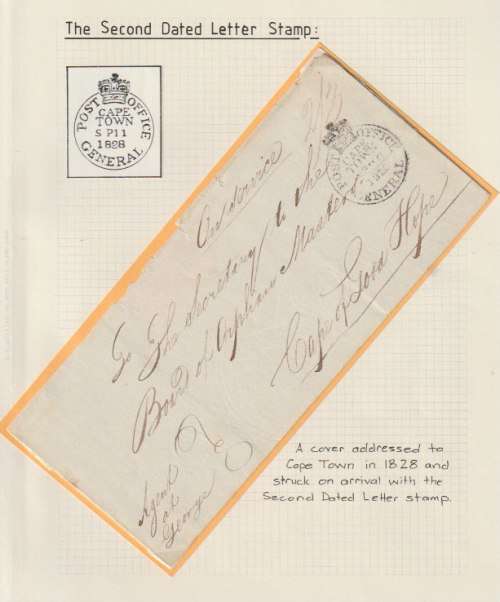 The Second Dated Letter Stamp:
POST OFFICE
CAPE
TOWN
S P 11
1828
GENERAL
POST OFFICE
CAPE
TOWN
GENERAL
On service
To The Secretary to the
Board of Orphan Masters
Cape of Good Hope
Agent
at
George
A cover addressed to
Cape Town in 1828 and
struck on arrival with the
Second Dated Letter stamp.